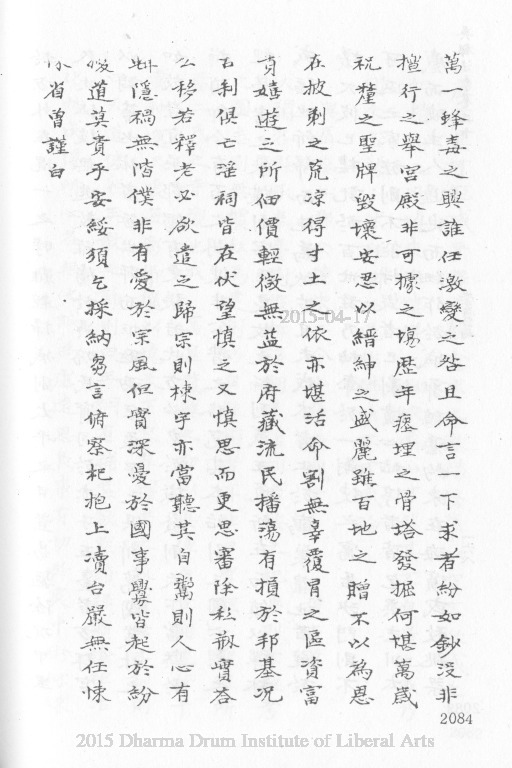 萬一蜂毒之興誰任激變之咎且命言一下求者紛如鈔沒非
擅行之舉宮殿非可據之塲歷年瘞埋之骨塔發掘何堪萬歲
祝釐之聖牌毀壞安忍以縉紳之盛麗雖百地之贈不以為恩
在披剃之荒涼得寸土之依亦堪活命割無辜覆冒之區資富
貴嬉遊之所佃價輕微無益於府藏流民播蕩有損於邦基况
古剎俱亡淫祠皆在伏望慎之又慎思而更思審除私
公移若釋老必欲遣之歸宗則棟宇亦當聽其自鬻則人心有
隱禍無階僕非有愛於宗風但實深憂於國事釁皆起於紛
道莫賁乎安綏須乞採納芻言俯察杞抱上瀆台嚴無任悚
省曾謹白
2015-04-17
2084
2015 Dharma Drum Institute of Liberal Arts